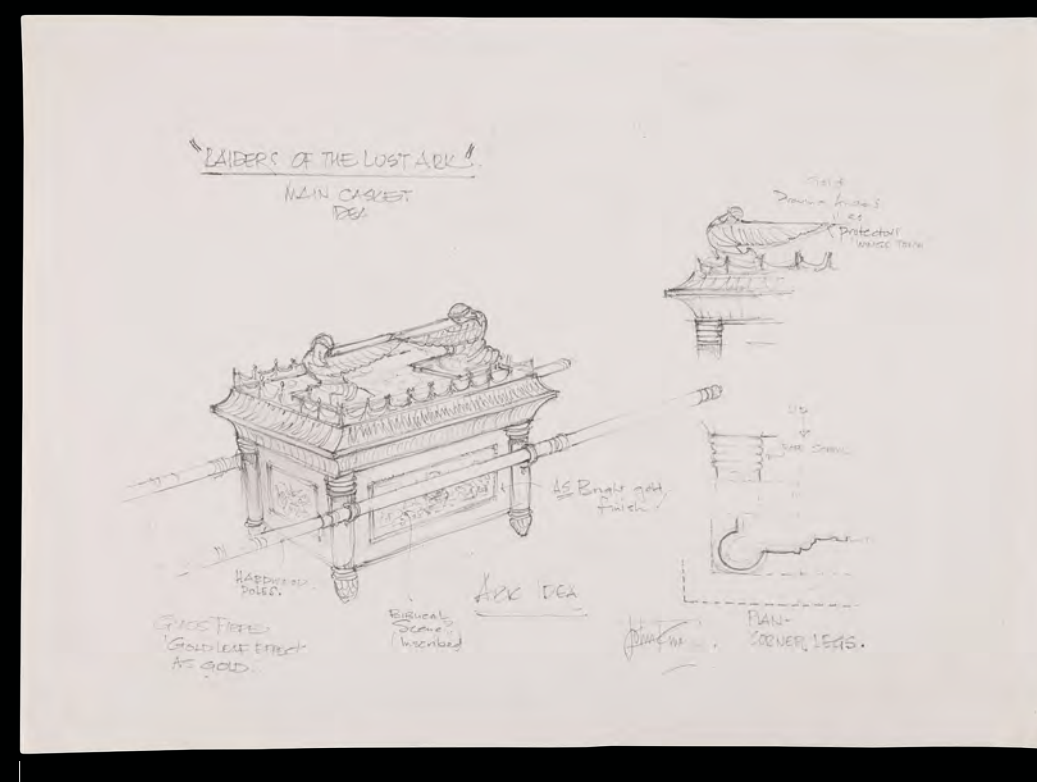 "RAIDERS OF THE LOST ARK".
MAIN CASKET
IDEA
Drawing
as
Protector
AS Bright gold
finish
HARDWOOD
POLES.
GLASS FIBRE
'GOLD LEAF EFFECT
AS GOLD.
Biblical
Scene
Inscribed
ARK IDEA
PLAN-
CORNER, LEGS.